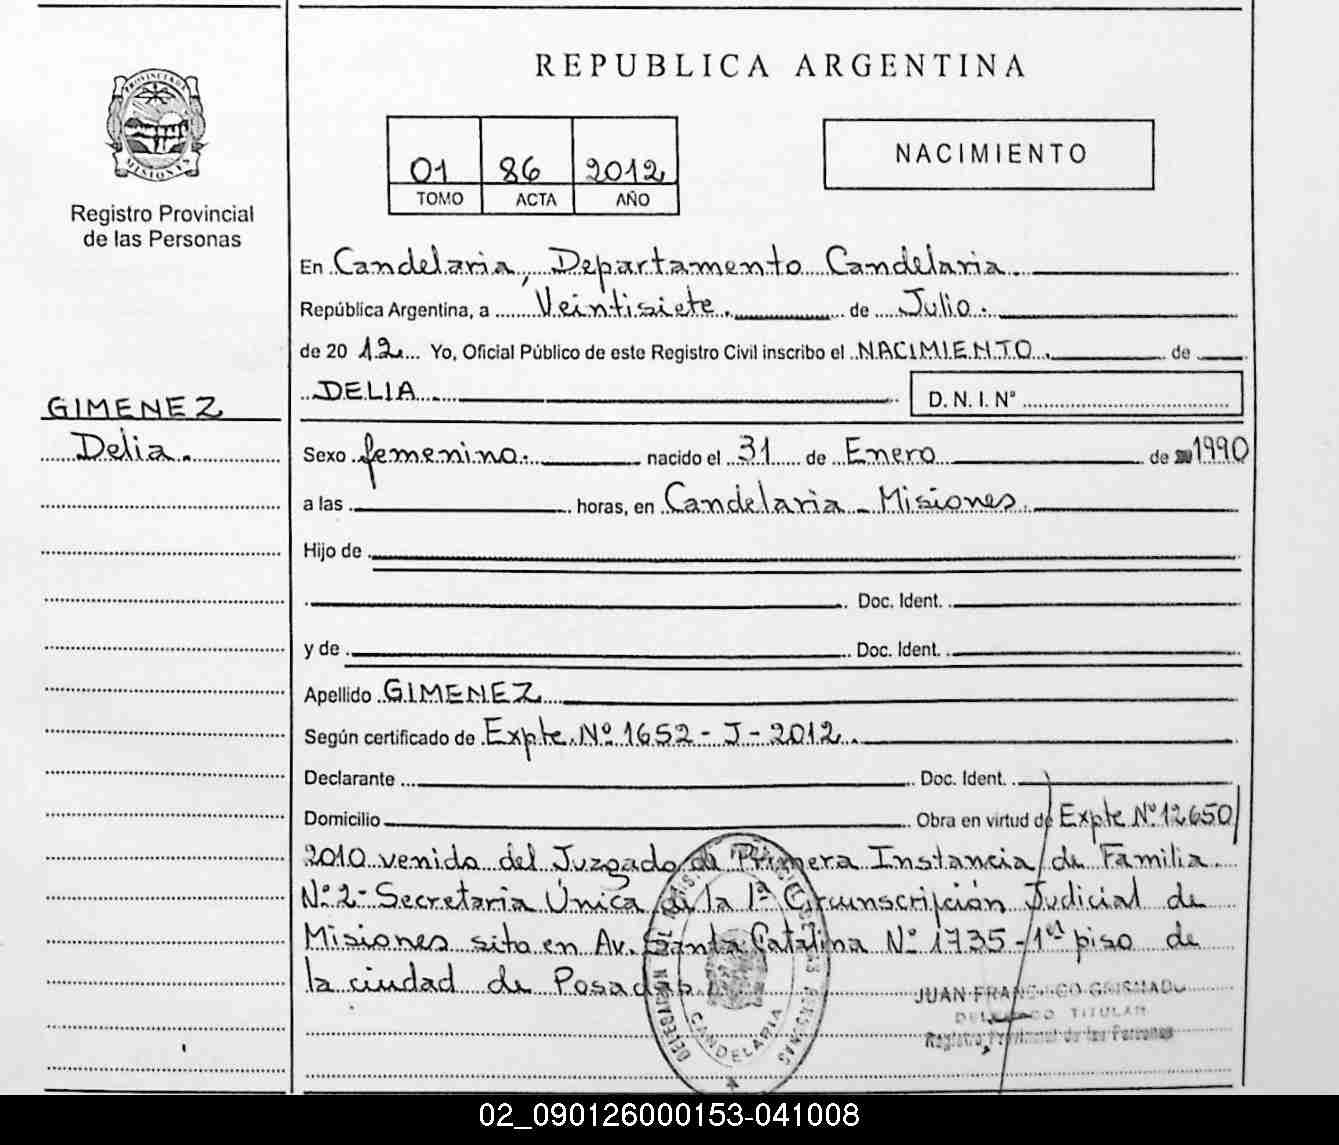 REPUBLICA ARGENTINA
PROVINCIA DE
MISIONES
Registro Provincial
de las Personas
01 86 2012
TOMO ACTA AÑO
NACIMIENTO
En Candelaria, Departamento Candelaria.
República Argentina, a Veintisiete. de Julio.
de 20 12 Yo, Oficial Público de este Registro Civil inscribo el NACIMIENTO. de
DELIA D. N. I. N°
GIMENEZ
Delia.
Sexo femenino. nacido el 31 de Enero de 1990
a las horas, en Candelaria - Misiones.
Hijo de
Doc. Ident.
y de Doc. Ident.
Apellido GIMENEZ
Según certificado de Expte. Nº 1652 - J - 2012.
Declarante Doc. Ident.
Domicilio Obra en virtud de Expte Nº 12650/
2010 venido del Juzgado de Primera Instancia de Familia
Nº 2 - Secretaria Única de la 1ª Circunscripción Judicial de
Misiones sito en Av. Santa Catalina Nº 1735 - 1er piso de
la ciudad de Posadas.
CANDELARIA
JUAN FRANCISCO GRISMADO
DELEGADO TITULAR
Registro Provincial de las Personas
02_090126000153-041008